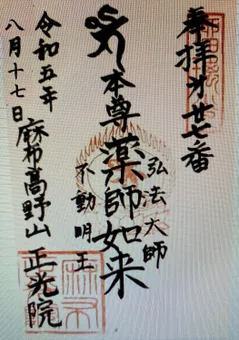 奉拝才廿七番
弘法大師
本尊薬師如来
不動明王
麻布高野山正光院
令和五年
八月十七日